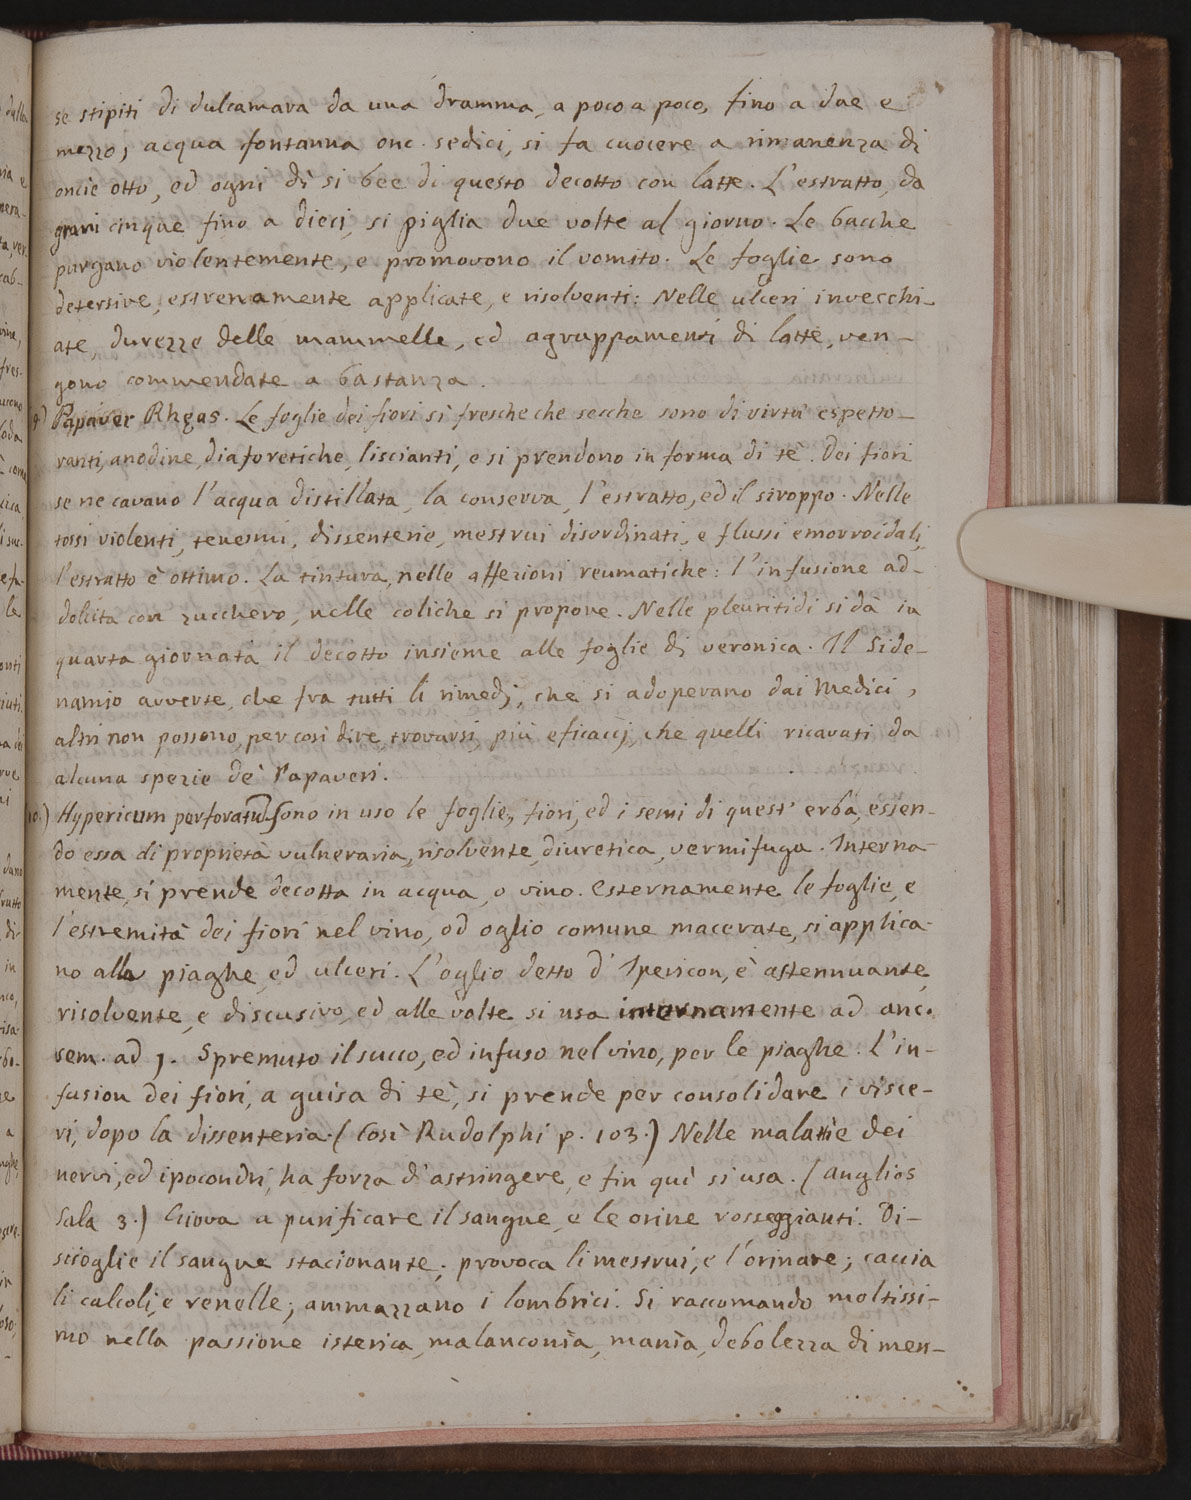 se stipiti di dulcamara da una dramma, a poco a poco, fino a due e
mezzo; acqua fontanna onc. sedici, si fa cuocere a rimanenza di
oncie otto, ed ogni dì si bee di questo decotto con latte. L'estratto, da
grani cinque fino a dieci, si piglia due volte al giorno. Le bacche
purgano violentemente, e promovono il vomito. Le foglie sono
detersive, estrenamente applicate, e risolventi: Nelle ulceri invecchi-
ate, durezze delle mammelle, ed agruppamenti di latte, ven-
gono commendate a bastanza.
9) Papaver Rhęas. Le foglie dei fiori sì fresche che secche sono di virtù espetto-
ranti, anodine, diaforetiche, liscianti, e si prendono in forma di tè. Dei fiori
se ne cavano l'acqua distillata, la conserva, l'estratto, ed il siroppo. Nelle
tossi violenti, tenesmi, dissenterie, mestrui disordinati, e flussi emorroidali,
l'estratto è ottimo. La tintura, nelle affezioni reumatiche: l'infusione ad-
dolcita con zucchero, nelle coliche si propone. Nelle pleuritidi si dà in
quarta giornata il decotto insieme alle foglie di veronica. Il Side-
namio avverte, che fra tutti li rimedj, che si adoperano dai Medici,
altri non possono, per così dire, trovarsi più eficacij, che quelli ricavati da
alcuna spezie de' Papaveri.
10.) Hypericum perforatum. Sono in uso le foglie, fiori, ed i semi di quest' erba, essen-
do essa di proprietà vulneraria, risolvente, diuretica, vermifuga. Interna-
mente, si prende decotta in acqua, o vino. Esternamente le foglie, e
l'estremità dei fiori nel vino, od oglio comune macerate, si applica-
no alle piaghe, ed ulceri. L'oglio detto d' Ipericon, è astennuante,
risolvente, e discusivo, ed alle volte si usa internamente ad onc.
sem. ad 1. Spremuto il succo, ed infuso nel vino, per le piaghe. L'in-
fusion dei fiori, a guisa di tè, si prende per consolidare i visce-
ri, dopo la dissenteria. (Così Rudolphi p. 103.) Nelle malattie dei
nervi, ed ipocondri, ha forza d' astringere, e fin quì si usa. (Anglios
Sala 3.) Giova a purificare il sangue, e le orine rosseggianti. Di-
scioglie il sangue stacionante; provoca li mestrui, e l'orinare; caccia
li calcoli, e renelle; ammazzano i lombrici. Si raccomando moltissi-
mo nella passione isterica, malanconìa, manìa, debolezza di men-